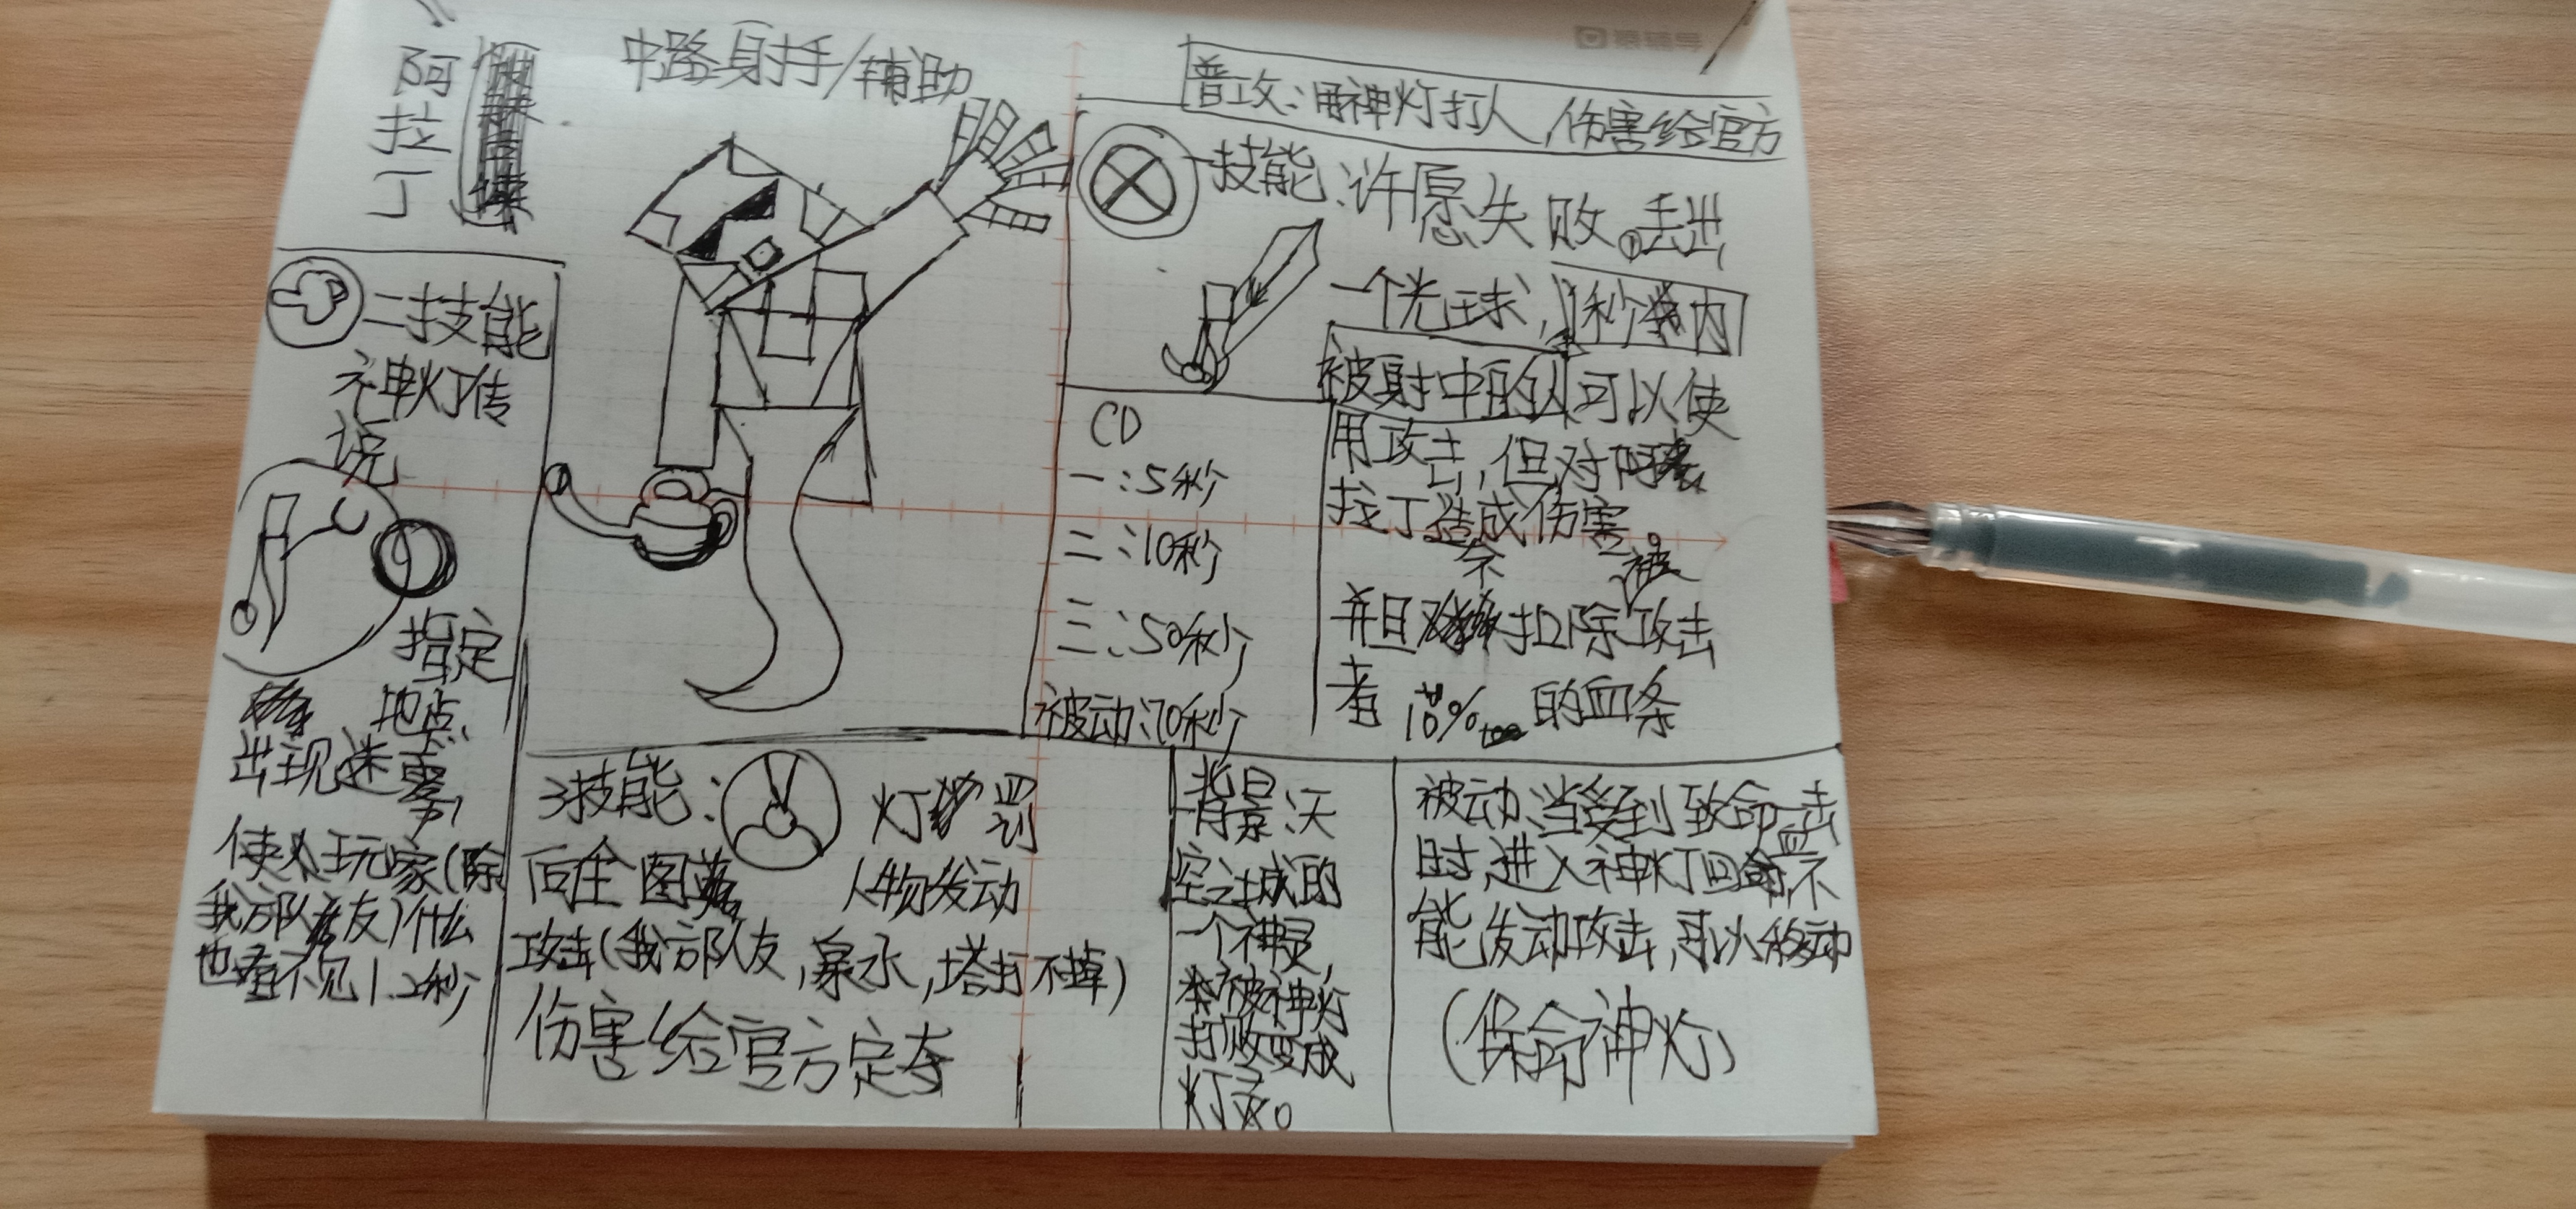 阿拉丁
中路射手/辅助
普攻:用神灯打人,伤害给官方
一技能:许愿失败。丢出
一个光球,1秒内
被射中的人可以使
用攻击,但对阿
拉丁造成伤害
会
被
并且扣除攻击
者10%的血条
CD
一:5秒
二:10秒
三:50秒
被动:70秒
二技能
神灯传
说
指定
地点
出现迷雾,
使玩家(除
我方队友)什么
也看不见1.2秒
3技能:
灯罚
向全图
人物发动
攻击(我方队友,泉水,塔打不掉)
伤害给官方定夺
背景:天
空之城的
一个神灵,
被神灯
打败变成
灯灵。
被动:当受到致命一击
时,进入神灯回血,不
能发动攻击,可以移动
(保命神灯)